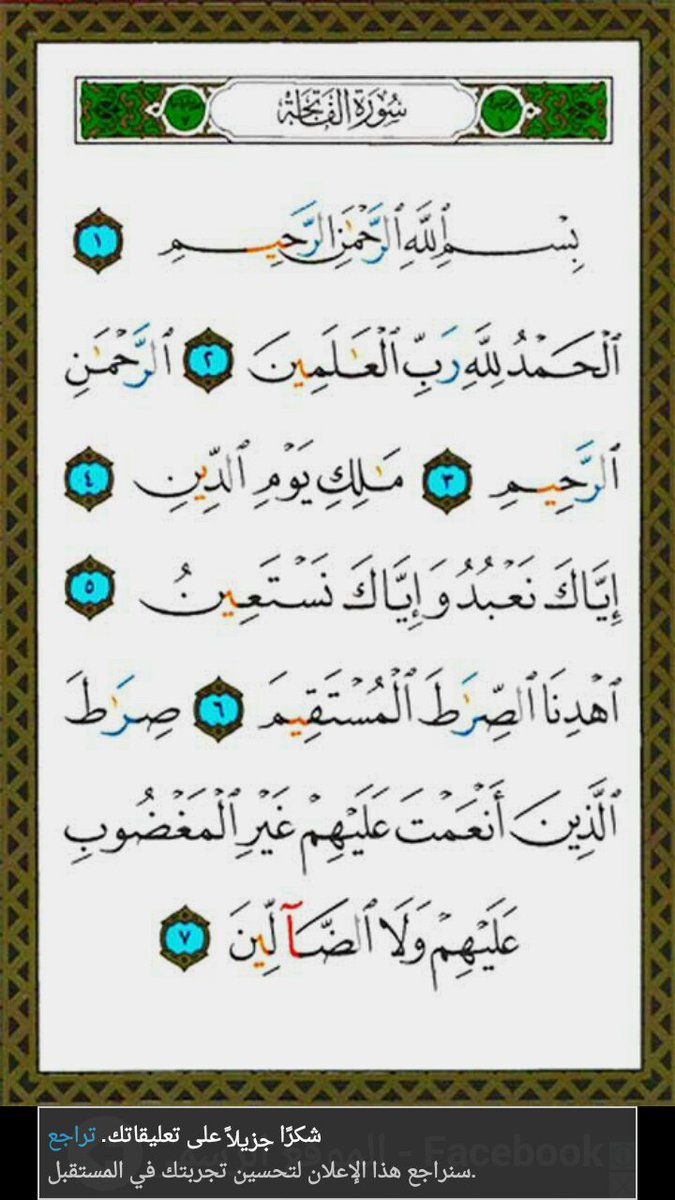 سُورَةُ الفَاتِحَةِ
بِسْمِ ٱللَّهِ ٱلرَّحْمَٰنِ ٱلرَّحِيمِ ١
ٱلْحَمْدُ لِلَّهِ رَبِّ ٱلْعَٰلَمِينَ ٢ ٱلرَّحْمَٰنِ
ٱلرَّحِيمِ ٣ مَٰلِكِ يَوْمِ ٱلدِّينِ ٤
إِيَّاكَ نَعْبُدُ وَإِيَّاكَ نَسْتَعِينُ ٥
ٱهْدِنَا ٱلصِّرَٰطَ ٱلْمُسْتَقِيمَ ٦ صِرَٰطَ
ٱلَّذِينَ أَنْعَمْتَ عَلَيْهِمْ غَيْرِ ٱلْمَغْضُوبِ
عَلَيْهِمْ وَلَا ٱلضَّآلِّينَ ٧
شكرًا جزيلاً على تعليقاتك. تراجع
سنراجع هذا الإعلان لتحسين تجربتك في المستقبل.
Facebook -